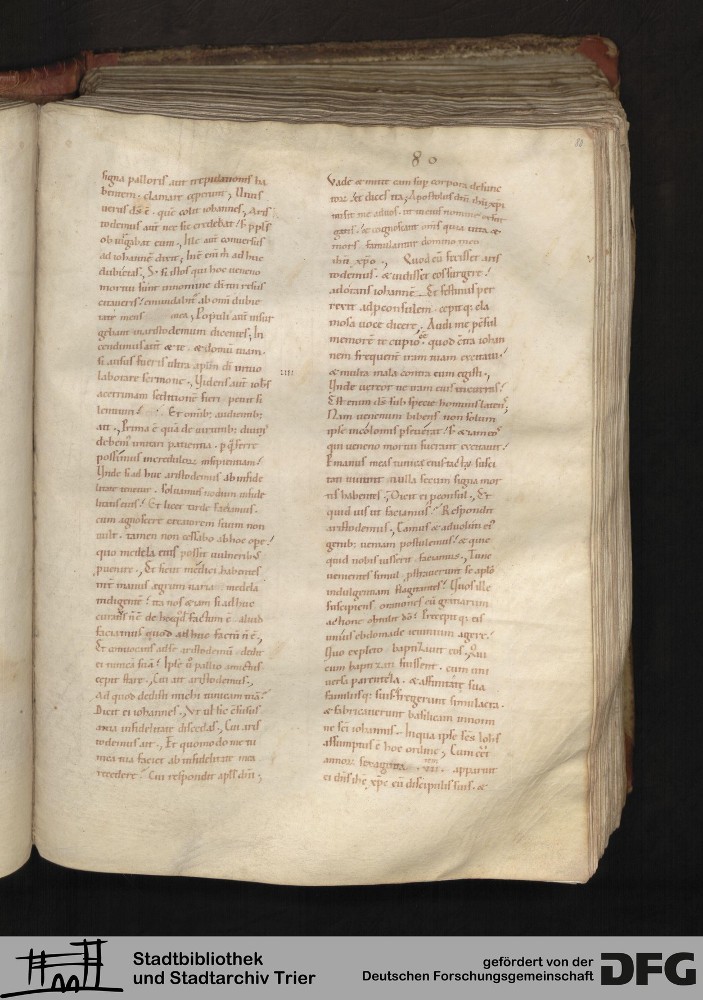 80
80
signa palloris aut trepidationis ha
berent. clamare ceperunt; Unus
uerus ds ē. quē colit iohannes; Aris
todemus aut nec sic credebat. & ppls
obiurgabat eum; Ille aut conuersus
ad iohannē dixit; Inē eni m adhuc
dubietas; Si istos qui hoc ueneno
mortui sunt innomine dī tui resusci
citaueris. emundabit ab omi dubie
tate mens mea; Populi aut insur
gebant in aristodemum dicentes; In
cendimus aut & te. & domum tuam.
si ausus fueris ultra aplm dī
laborare sermone; Uidens aut iohs
acerrimam seditione fieri. petiit si
lentium. Et omib; audientib;
ait; Prima ē quā de uirtutib;
debem imitari patientia. p quā ferre
possimus incredulorum insipientiam.
Unde si adhuc aristodemus ab infide
litate tenetur. soluamus nodum infide
litatis eius. Et licet tarde faciamus
eum agnoscere creatorem suum non
uult. tamen non cessabo abhoc ope.
quo medela eius possit uulnerib;
puenire; Et sicut medici habentes
inter manus ægrum uaria medela
indigente. ita nos etiam si adhuc
curatus nē de hoc qd factum ē. aliud
faciamus quod adhuc factū nē;
Et conuocans ad se aristodemū. dedit
ei tunicā suā. Ipse ū pallio amictus
cepit stare; Cui ait aristodemus;
Ad quod dedisti michi tunicam tuā.
Dicit ei iohannes; Ut uł sic cfusus
atua infidelitate discedas; Cui aris
todemus ait; Et quomodo me tu
nica tua faciet ab infidelitate mea
recedere. Cui respondit apls dni;
iiii
Uade & mitte eam sup corpora defunc
torū. & dices ita; Apostolus dni ihu xpi
misit me aduos. ut in eius nomine exsur
gatis. & cognoscant oms quia uita &
mors famulantur domino meo
ihu xpo; Quod cū fecisset aris
todemus. & uidisset eos surgere.
adorans iohannē. & festinus per
rexit ad pconsulem. cepitq; cla
mosa uoce dicere; Audi me psul
memorē te cupio. quod cōtra iohan
nem frequent iram tuam excitaui.
& multa mala contra eum egisti.
Unde uereor ne iram eius incurras.
Est enim ds sub specie hominis latens;
Nam uenenum bibens non solum
ipse incolomis pseuerat. s; & etiam eos
qui ueneno mortui fuerant excitauit.
Et manus meas tunicæ eius tactu susci
tati uiuunt nulla secum signa mor
tis habentes; Dicit ei pconsul; Et
quid uis ut faciamus. Respondit
aristodemus; Eamus & aduoluti eius
genib; ueniam postulemus. & quæ
quid nobis iusserit faciamus; Tunc
uenientes simul pstrauerunt se aplo
indulgentiam flagitantes. Quos ille
suscipiens orationes cū gratiarum
actione obtulit dō. Precepit q; eis
unius ebdomade ieiunium agere.
Quo expleto. baptizauit eos. Qui
cum baptizati fuissent. cum uni
uersa parentela. & affinitate sua
famulisq; suis. fregerunt simulacra.
& fabricauerunt basilicam innomi
ne sci iohannis. In qua ipse scs iohs
assumptus ē hoc ordine; Cum eēt
annorū sexaginta vii. apparuit
ei dns ihc xpc cū discipulis suis. &
Stadtbibliothek
und Stadtarchiv Trier
gefördert von der
Deutschen Forschungsgemeinschaft
DFG